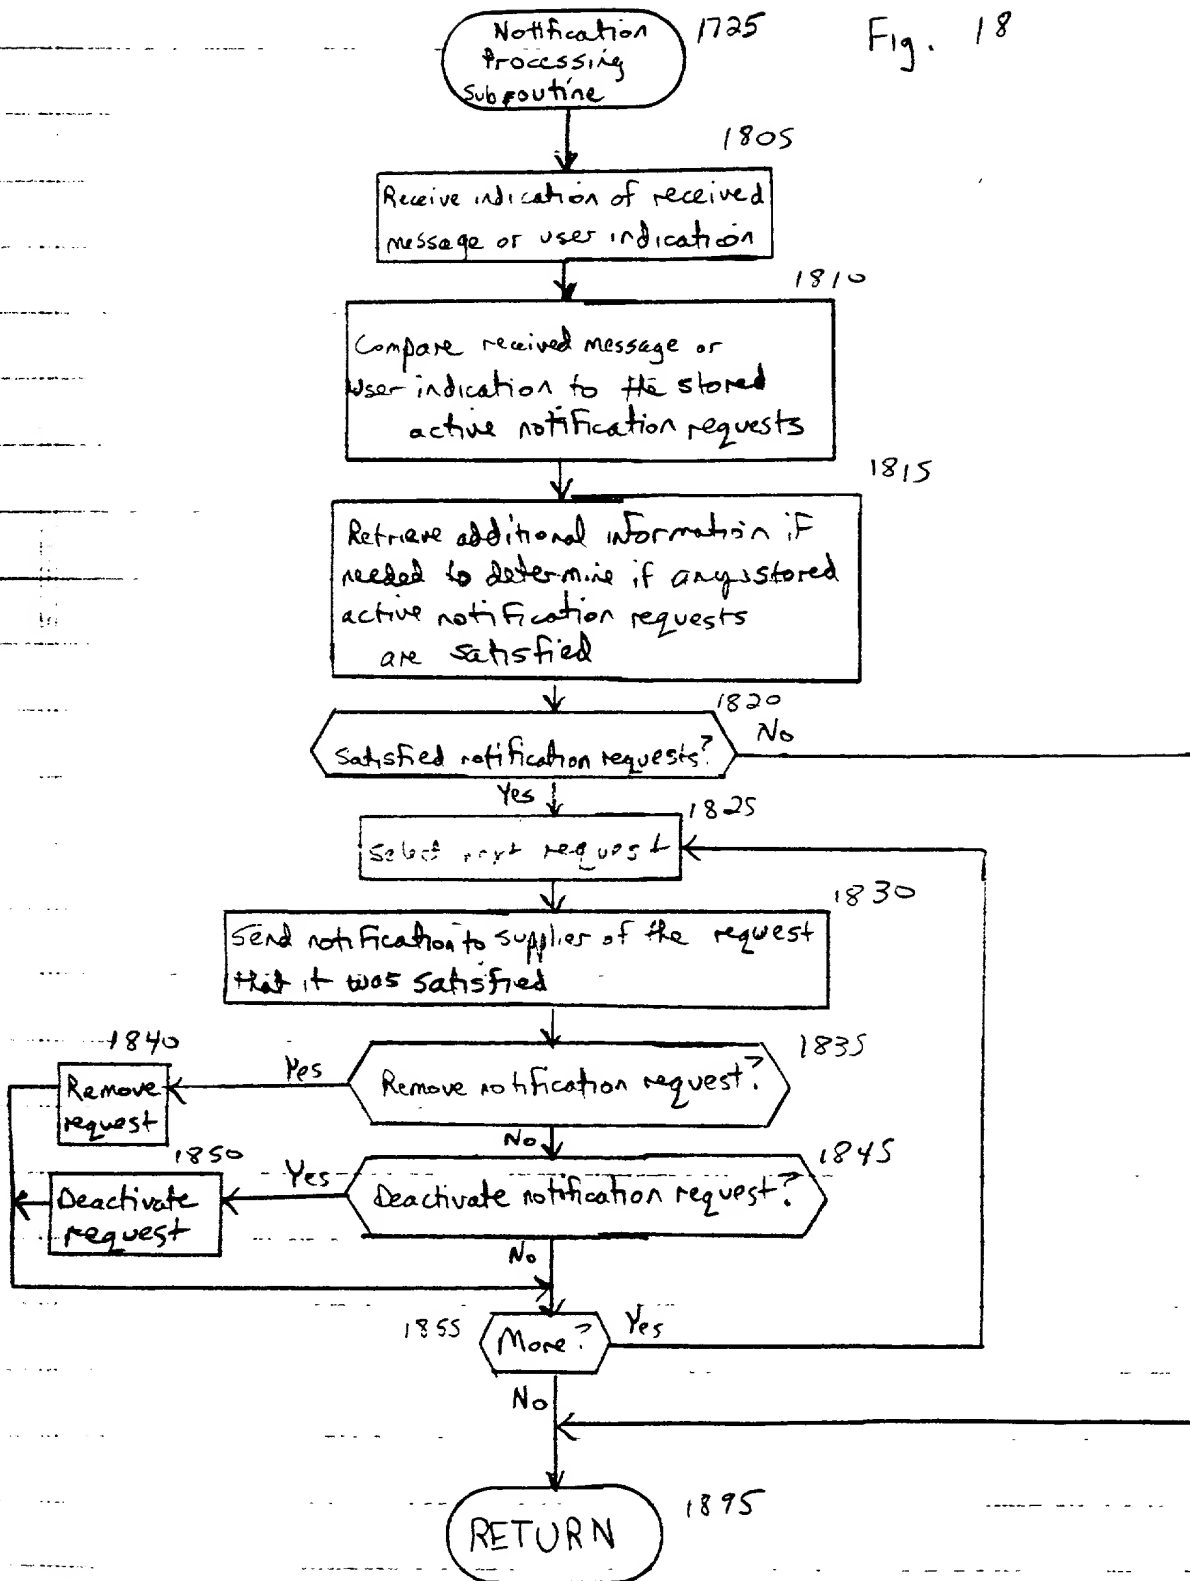 Fig. 18
Notification
Processing
Subroutine
1725
1805
Receive indication of received
message or user indication
1810
Compare received message or
User indication to the stored
active notification requests
1815
Retrieve additional information if
needed to determine if any stored
active notification requests
are satisfied
1820
Satisfied notification requests?
No
Yes
1825
Select next request
1830
Send notification to supplier of the request
that it was satisfied
1835
Remove notification request?
Yes
1840
Remove
request
No
1845
Deactivate notification request?
Yes
1850
Deactivate
request
No
1855
More?
Yes
No
RETURN
1895